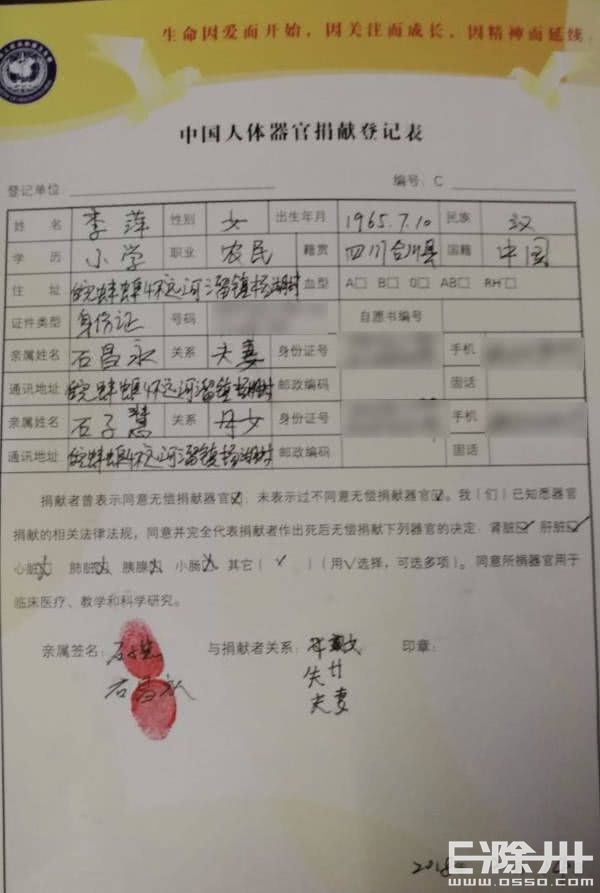 生命因爱而开始，因关注而成长，因精神而延续
中国人体器官捐献登记表
登记单位 编号：C
姓 名 李萍 性别 女 出生年月 1965.7.10 民族 汉
学 历 小学 职业 农民 籍贯 四川合川县 国籍 中国
住 址 皖蚌埠怀远河溜镇杨湖村 血型 A□ B□ O□ AB□ RH□
证件类型 身份证 号码 自愿书编号
亲属姓名 石昌永 关系 夫妻 身份证号 手机
通讯地址 皖蚌埠怀远河溜镇杨湖村 邮政编码 固话
亲属姓名 石子慧 关系 母女 身份证号 手机
通讯地址 皖蚌埠怀远河溜镇杨湖村 邮政编码 固话
捐献者曾表示同意无偿捐献器官☑，未表示过不同意无偿捐献器官☑。我（们）已知悉器官
捐献的相关法律法规，同意并完全代表捐献者作出死后无偿捐献下列器官的决定：肾脏☑ 肝脏☑
心脏 肺脏 胰腺 小肠 其它（ ✓ ）（用√选择，可选多项）。同意所捐器官用于
临床医疗、教学和科学研究。
亲属签名： 与捐献者关系： 印章：
石昌永 夫妻
2018
E滁州
www.0550.com